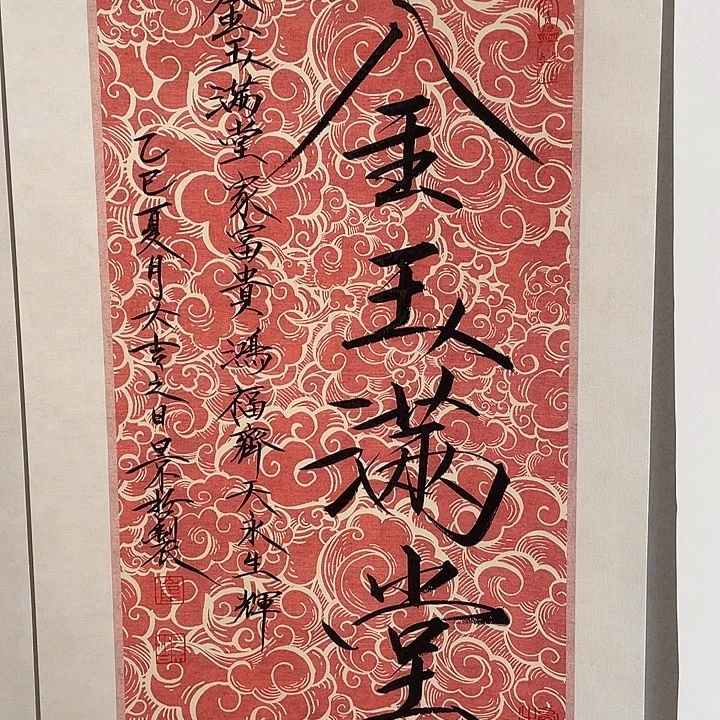 金玉滿堂
金玉滿堂家富貴鴻福齊天永生輝
乙巳夏月大吉之日景松製